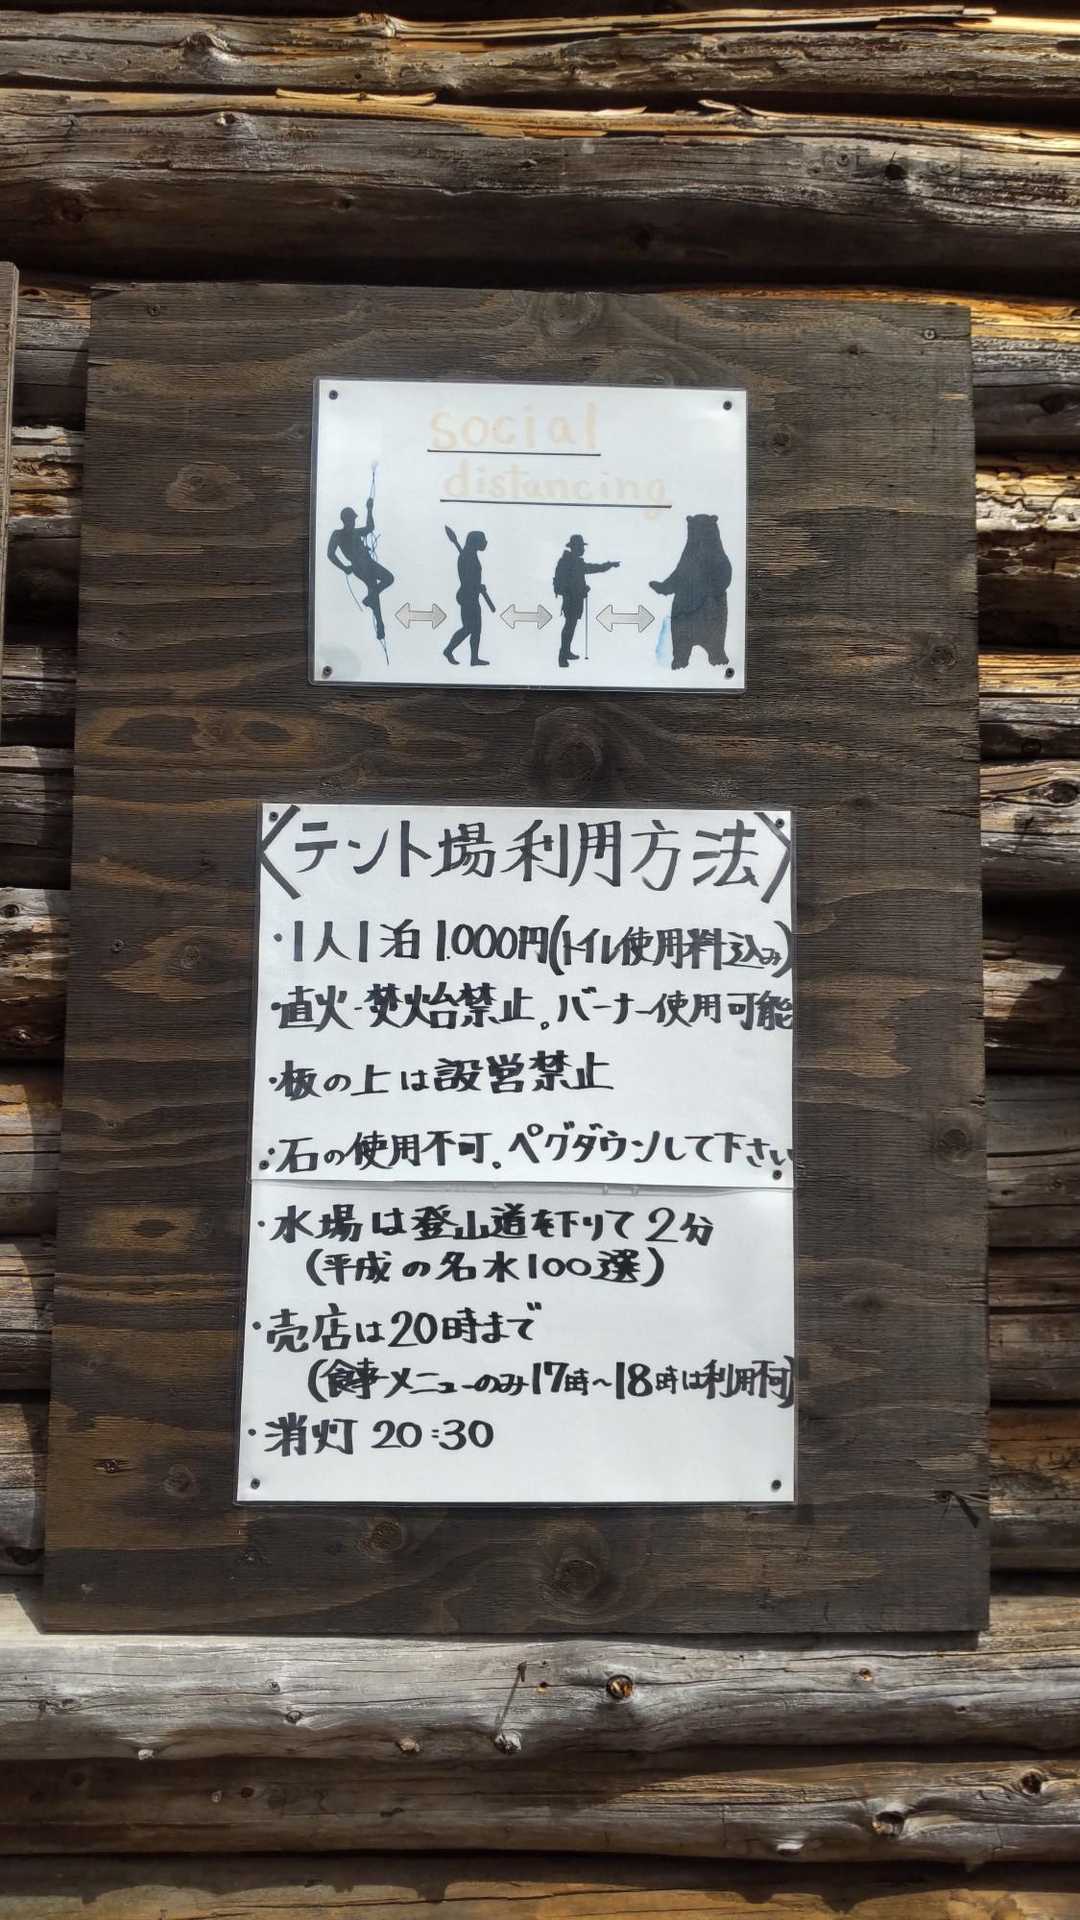 social
distancing
〈テント場利用方法〉
・1人1泊1.000円(トイレ使用料込み)
・直火・焚火台禁止。バーナー使用可能
・板の上は設営禁止
・石の使用不可。ペグダウンして下さい
・水場は登山道を下りて2分
(平成の名水100選)
・売店は20時まで
(食事メニューのみ17時~18時は利用不可)
・消灯 20:30